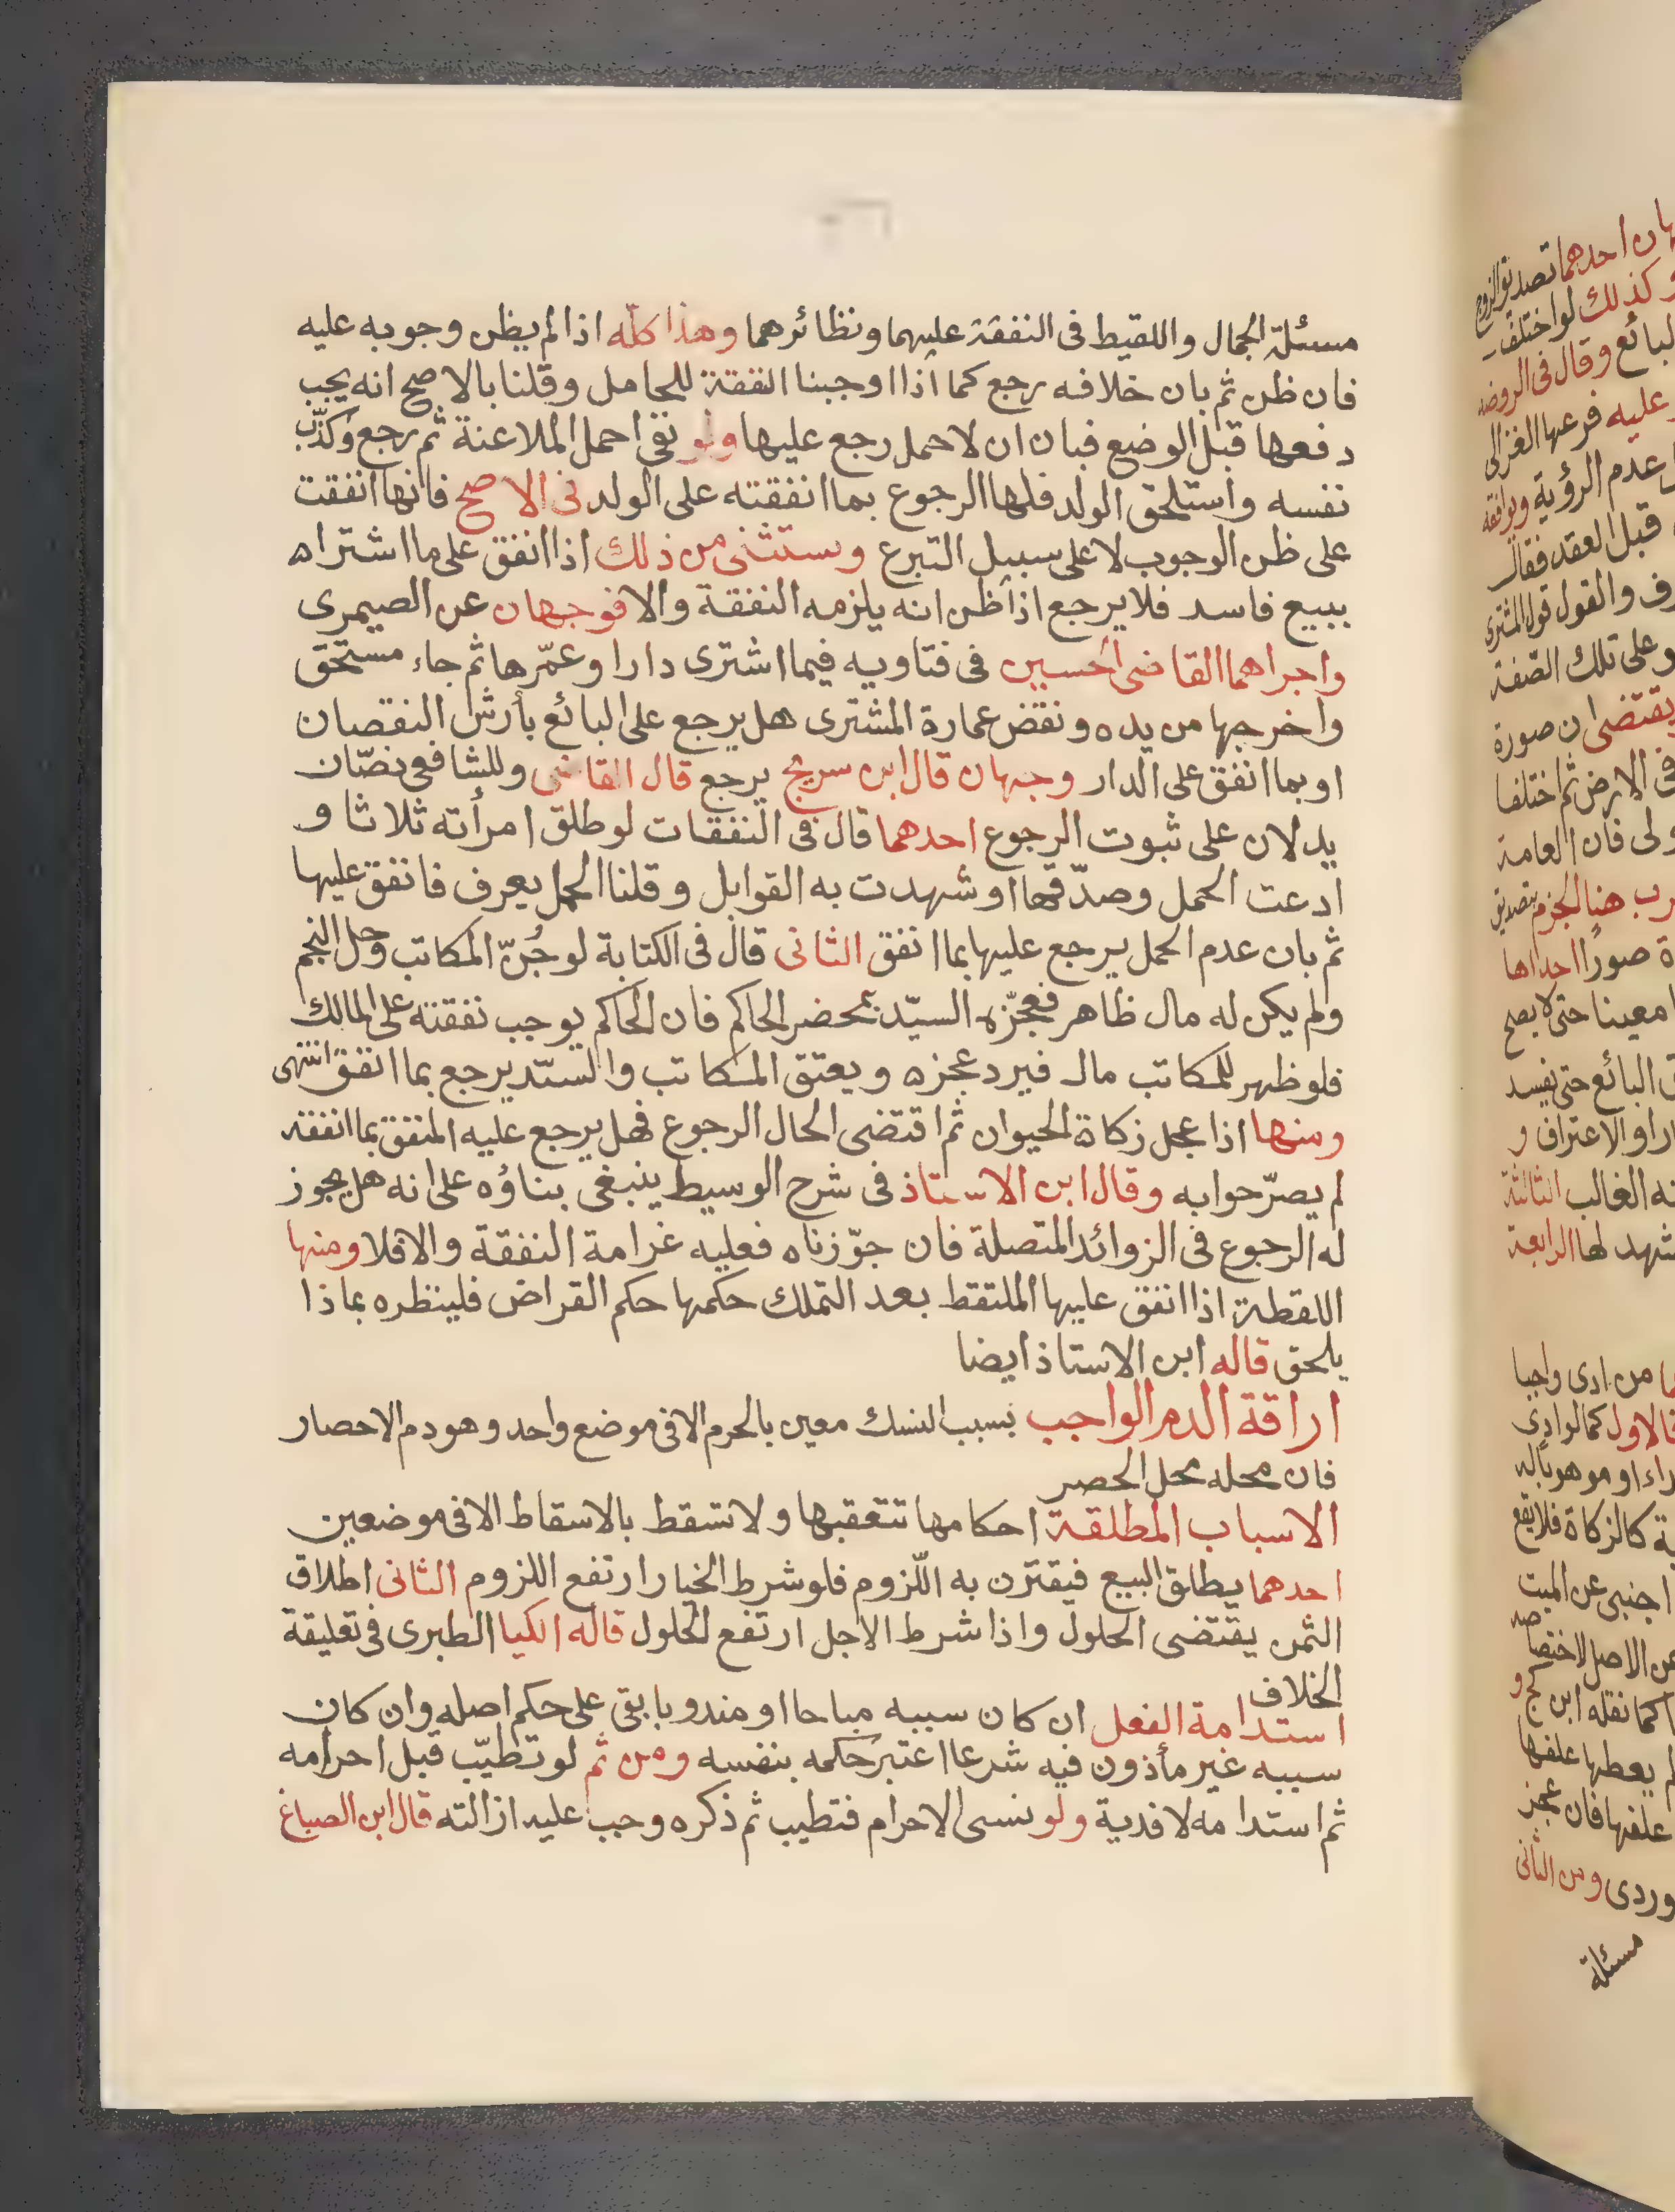 مسئلة الجمال واللقيط فى النفقة عليهما ونظائرهما وهذا كلّه اذا لم يظن وجوبه عليه
فان ظن ثم بان خلافه رجع كما اذا اوجبنا النفقة للحامل وقلنا بالاصح انه يجب
دفعها قبل الوضع فبان ان لا حمل رجع عليها ولو نفى احمل الملاعنة ثم رجع وكذّب
نفسه واستلحق الولد فلها الرجوع بما انفقته على الولد فى الاصح فانها انفقت
على ظن الوجوب لا على سبيل التبرع ويستثنى من ذلك اذا انفق على ما اشتراه
ببيع فاسد فلا يرجع اذا ظن انه يلزمه النفقة والا فوجهان عن الصيمرى
واجراهما القاضى الحسين فى فتاويه فيما اشترى دارا وعمّرها ثم جاء مستحق
واخرجها من يده ونقض عمارة المشترى هل يرجع على البائع بأرش النقصان
او بما انفق على الدار وجهان قال ابن سريج يرجع قال القاضى وللشافعى نصّان
يدلان على ثبوت الرجوع احدهما قال فى النفقات لو طلق امرأته ثلاثا و
ادعت الحمل وصدّقها او شهدت به القوابل وقلنا الحمل يعرف فانفق عليها
ثم بان عدم الحمل يرجع عليها بما انفق الثانى قال فى الكتابة لو جُنّ المكاتب وحل النجم
ولم يكن له مال ظاهر فعجّزه السيّد بمحضر الحاكم فان الحاكم يوجب نفقته على المالك
فلو ظهر للمكاتب مال فيرد عجزه ويعتق المكاتب والسيّد يرجع بما انفق انتهى
ومنها اذا عجل زكاة الحيوان ثم اقتضى الحال الرجوع فهل يرجع عليه المنفق بما انفقه
لم يصرّحوا به وقال ابن الاستاذ فى شرح الوسيط ينبغى بناؤه على انه هل يجوز
له الرجوع فى الزوائد المتصلة فان جوّزناه فعليه غرامة النفقة والا فلا ومنها
اللقطة اذا انفق عليها الملتقط بعد التملك حكمها حكم القراض فلينظره بماذا
يلحق قاله ابن الاستاذ ايضا
اراقة الدم الواجب بسبب النسك معين بالحرم الا فى موضع واحد وهو دم الاحصار
فان محله محل الحصر
الاسباب المطلقة احكامها تتعقبها ولا تسقط بالاسقاط الا فى موضعين
احدهما يطلق البيع فيقترن به اللّزوم فلو شرط الخيار ارتفع اللزوم الثانى اطلاق
الثمن يقتضى الحلول واذا شرط الاجل ارتفع الحلول قاله الكيا الطبرى فى تعليقة
الخلاف
استدامة الفعل ان كان سببه مباحا او مندوبا بقى على حكم اصله وان كان
سببه غير مأذون فيه شرعا اعتبر حكمه بنفسه ومن ثم لو تطيّب قبل احرامه
ثم استدامه لا فدية ولو نسى الاحرام فتطيب ثم ذكره وجب عليه ازالته قال ابن الصباغ
احدهما تصديق الزوج
وكذلك لو اختلف
البائع وقال فى الروضة
عليه فرعها الغزالى
عدم الرؤية ويوافقه
قبل العقد فقال
والقول قول المشترى
وعلى تلك الصّفة
يقتضى ان صورة
فى الارض ثم اختلفا
ولى فان العامة
هنا الجزم بتصديق
صورًا احداها
معينا حتى لا يصح
البائع حتى يفسد
او الاعتراف و
الغالب الثالثة
لها الرابعة
من ادى واجبا
فالاول كما لو ادى
او موهوبا له
كالزكاة فلا يقع
اجنبى عن الميت
عن الاصل لاختصاصه
كما نقله ابن كج و
يعطها علفها
علفها فان عجز
ومن الثانى
مسئلة